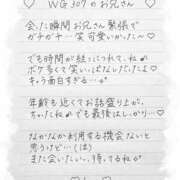 ♡ WG 307のお兄さん ♡
会った瞬間お兄さん緊張で
ガチガチ…笑 可愛いかった〜
でも時間が経つにつれて、ね♪
ボケ多くて笑いっぱなしだったよ♡
キャラ面白すぎる…!!
年齢も近くてお話盛り上がっ
ちゃったね♪でも最後はしっかり…♡
なかなか利用する機会ないと
思うけど…(は)
また会いたい、、待ってるね♪